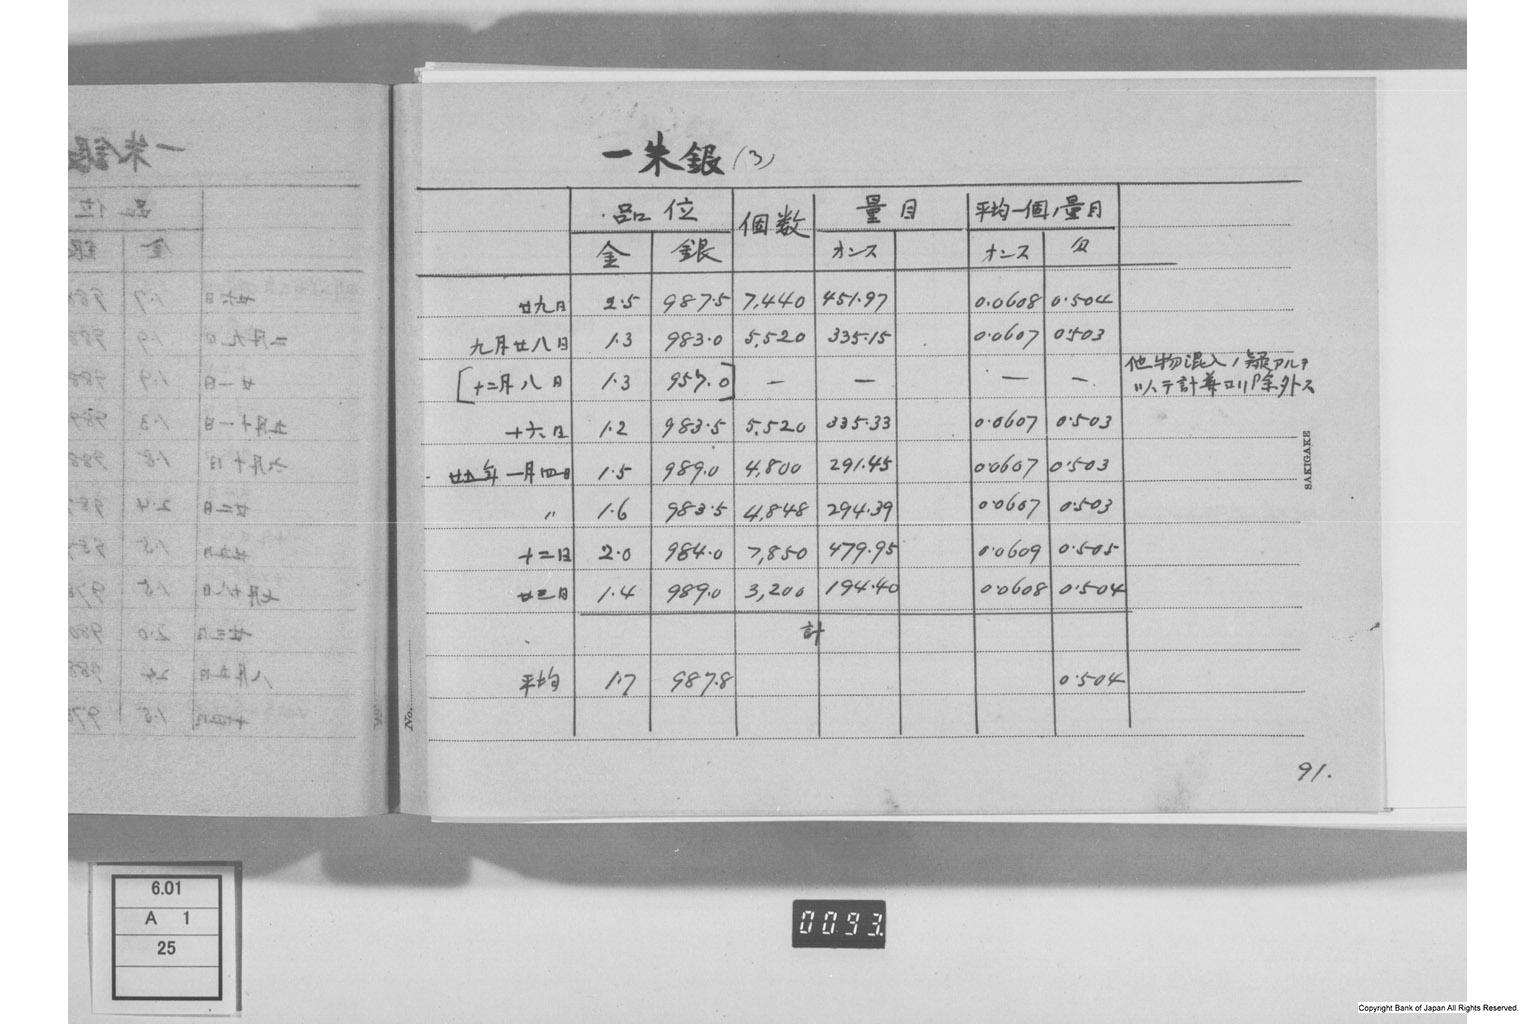 一朱銀(3)
品位 個数 量目 平均一個ノ量目
金 銀 オンス オンス 匁
廿九日 2.5 987.5 7,440 451.97 0.0608 0.504
九月廿八日 1.3 983.0 5,520 335.15 0.0607 0.503
[十二月八日 1.3 957.0] — — — — 他物混入ノ疑アルヲ
以テ計算ヨリ除外ス
十六日 1.2 983.5 5,520 335.33 0.0607 0.503
廿五年一月四日 1.5 989.0 4,800 291.45 0.0607 0.503
〃 1.6 983.5 4,848 294.39 0.0607 0.503
十二日 2.0 984.0 7,850 479.95 0.0609 0.505
廿三日 1.4 989.0 3,200 194.40 0.0608 0.504
計
平均 1.7 987.8 0.504
SAKIGAKE
No.
91.
6.01
A 1
25
0093
Copyright Bank of Japan All Rights Reserved.